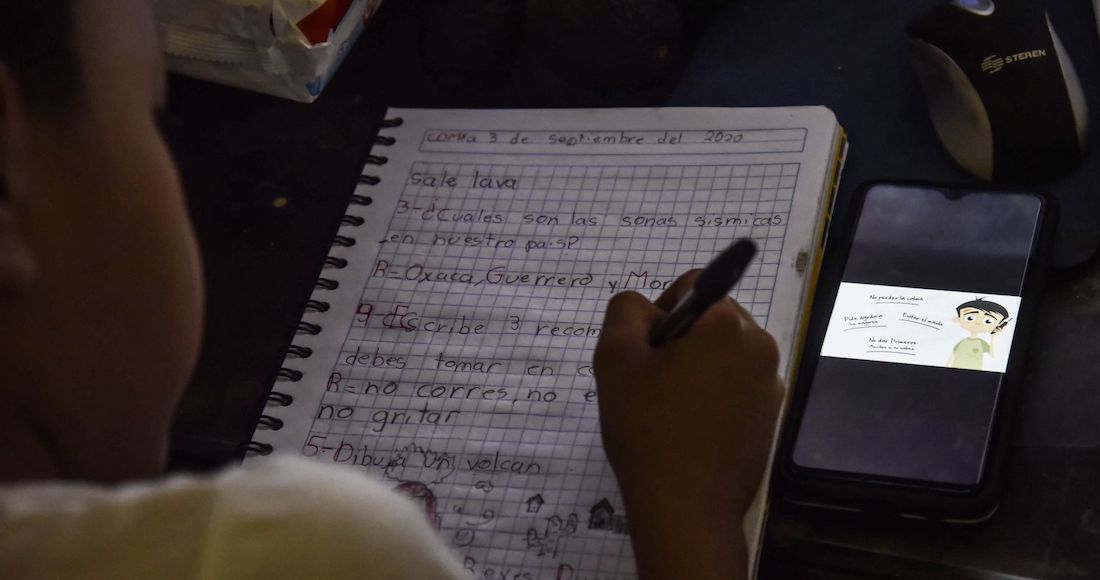 a 3 de septiembre del 2020
sale lava
3-¿cuales son las sonas sismicas
en nuestro pais?
R=Oxaca, Guerrero y Mor
Escribe 3 recom
debes tomar en
R=no corres, no e
no gritar
5-Dibuja un volcan
Reyes
STEREN
No perder la calma
Pide ayuda a
Evitar el miedo
No dar Primeros